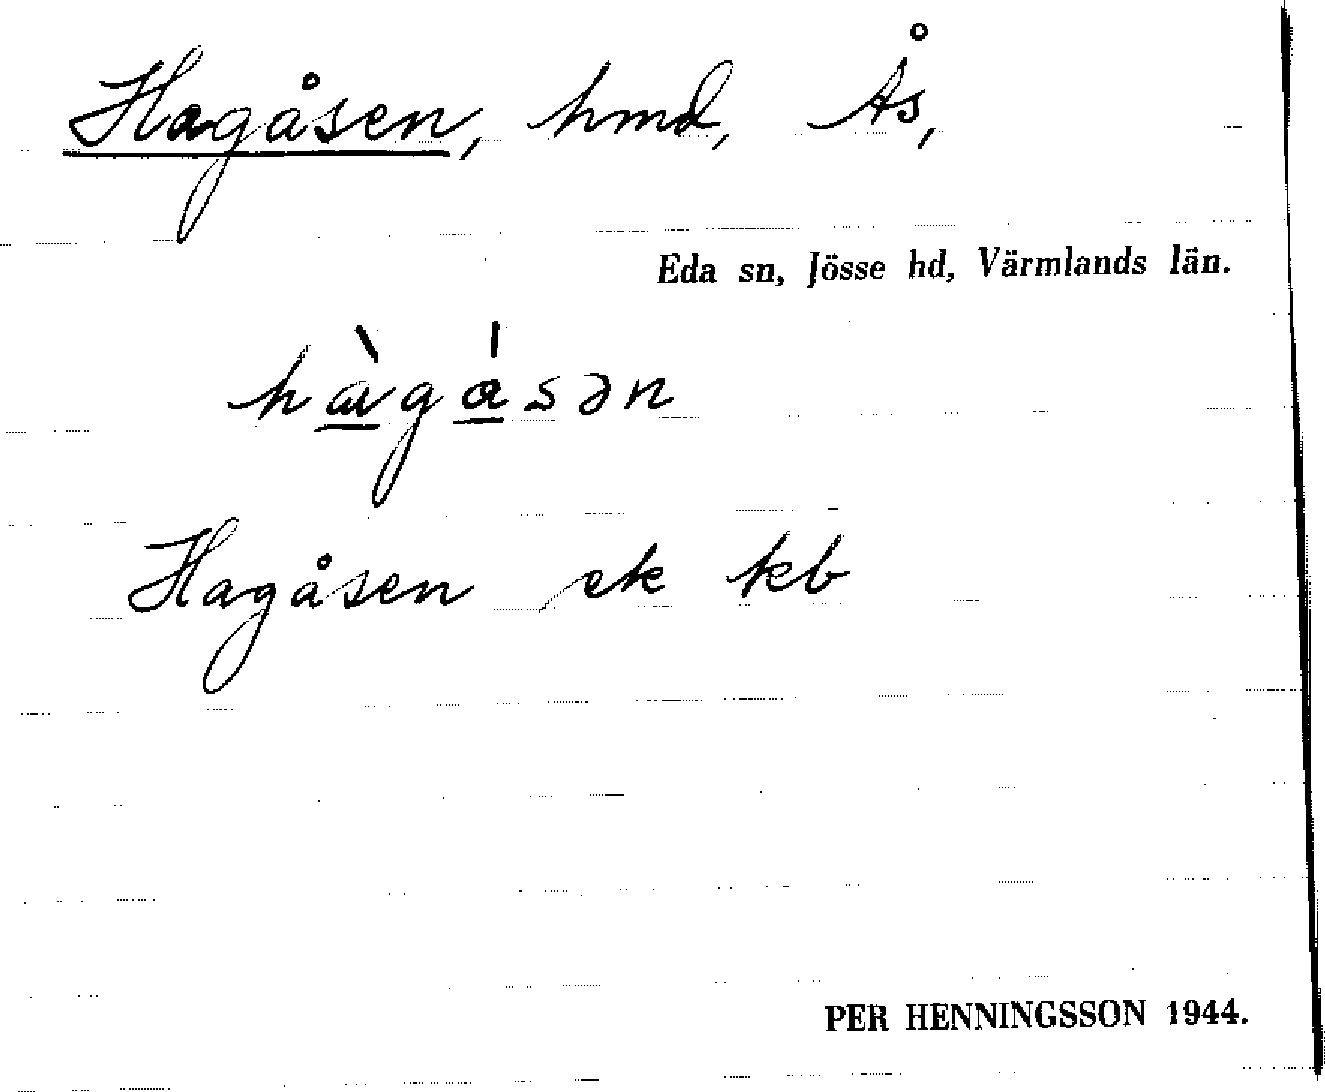 Hagåsen, hmd, Ås,
Eda sn, Jösse hd, Värmlands län.
hàgásən
Hagåsen ek kb
PER HENNINGSSON 1944.